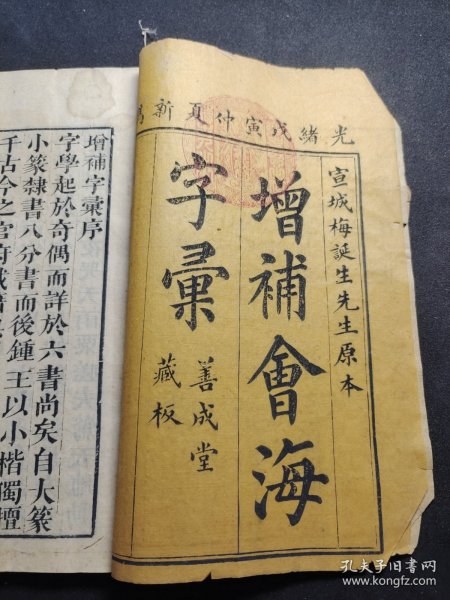 光緒戊寅仲夏新
宣城梅誕生先生原本
增補會海
字彙
善成堂
藏板
增補字彙序
字學起於奇偶而詳於六書尚矣自大篆
小篆隸書八分書而後鍾王以小楷獨擅
千古今之官府
孔夫子旧书网
www.kongfz.com